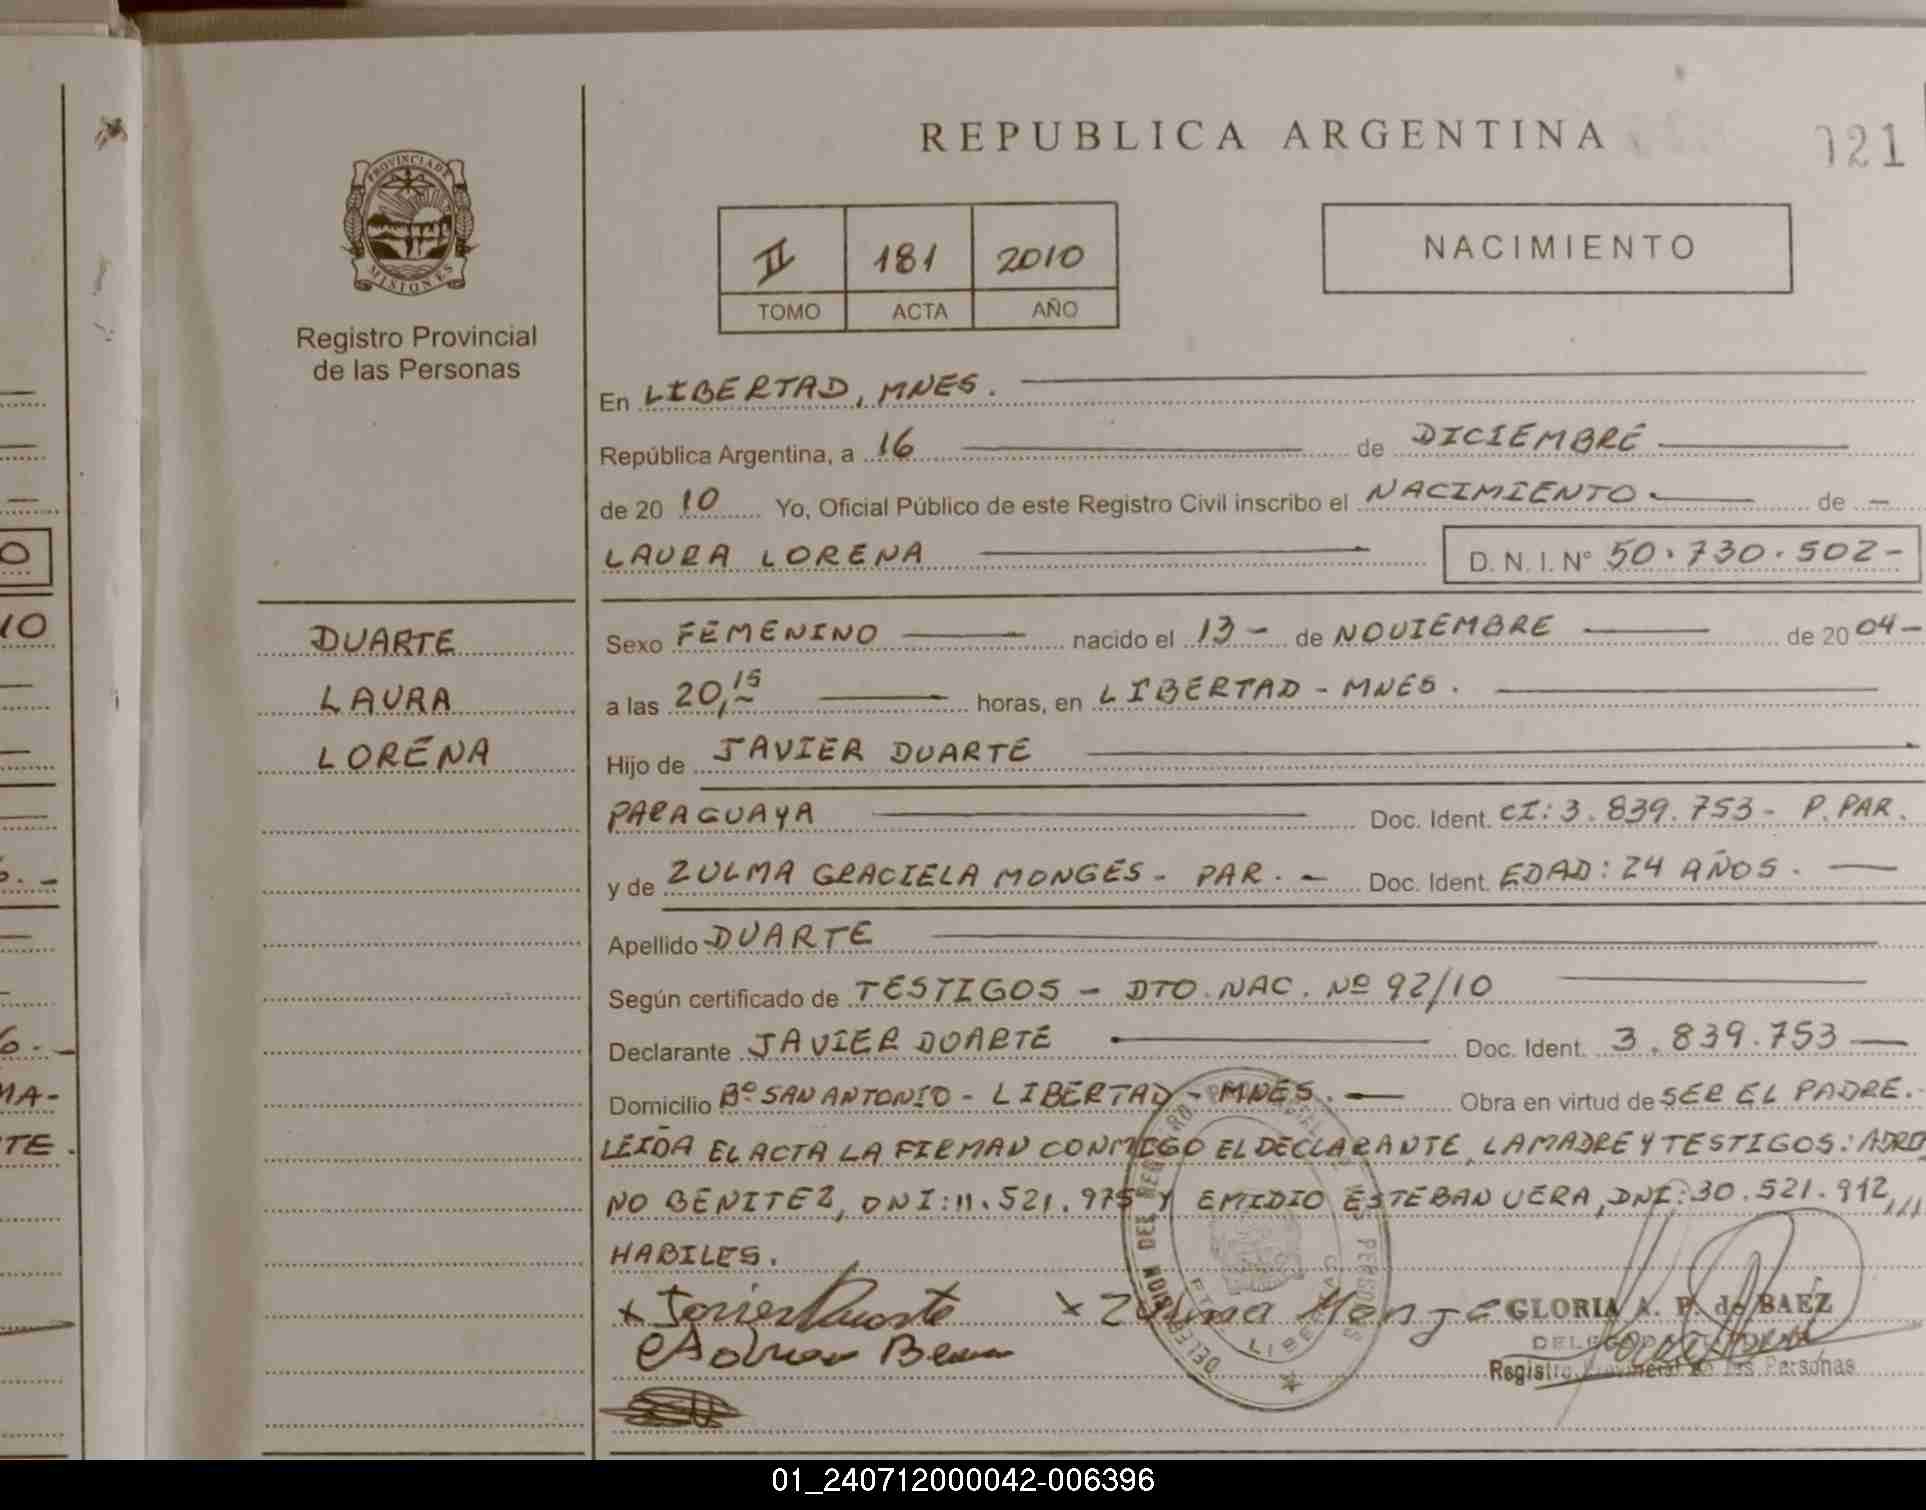 REPUBLICA ARGENTINA
021
PROVINCIA DE
MISIONES
Registro Provincial
de las Personas
II 181 2010
TOMO ACTA AÑO
NACIMIENTO
En LIBERTAD, MNES.
República Argentina, a 16 de DICIEMBRE
de 20 10 Yo, Oficial Público de este Registro Civil inscribo el NACIMIENTO de
LAURA LORENA D. N. I. Nº 50.730.502-
DUARTE
LAURA
LORENA
Sexo FEMENINO nacido el 13- de NOVIEMBRE de 20 04-
a las 20,15 horas, en LIBERTAD - MNES.
Hijo de JAVIER DUARTE
PARAGUAYA Doc. Ident. CI: 3.839.753- P. PAR.
y de ZULMA GRACIELA MONGES - PAR. - Doc. Ident. EDAD: 24 AÑOS.
Apellido DUARTE
Según certificado de TESTIGOS - DTO. NAC. Nº 92/10
Declarante JAVIER DUARTE Doc. Ident. 3.839.753
Domicilio Bº SAN ANTONIO - LIBERTAD - MNES. Obra en virtud de SER EL PADRE.-
LEIDA EL ACTA LA FIRMAN CONMIGO EL DECLARANTE, LA MADRE Y TESTIGOS: ADRO
NO BENITEZ, DNI: 11.521.975 Y EMIDIO ESTEBAN VERA, DNI: 30.521.912,
HABILES.
x Javier Duarte x Zulma Monge
GLORIA A. P. de BAEZ
Registro Provincial de las Personas
01_240712000042-006396